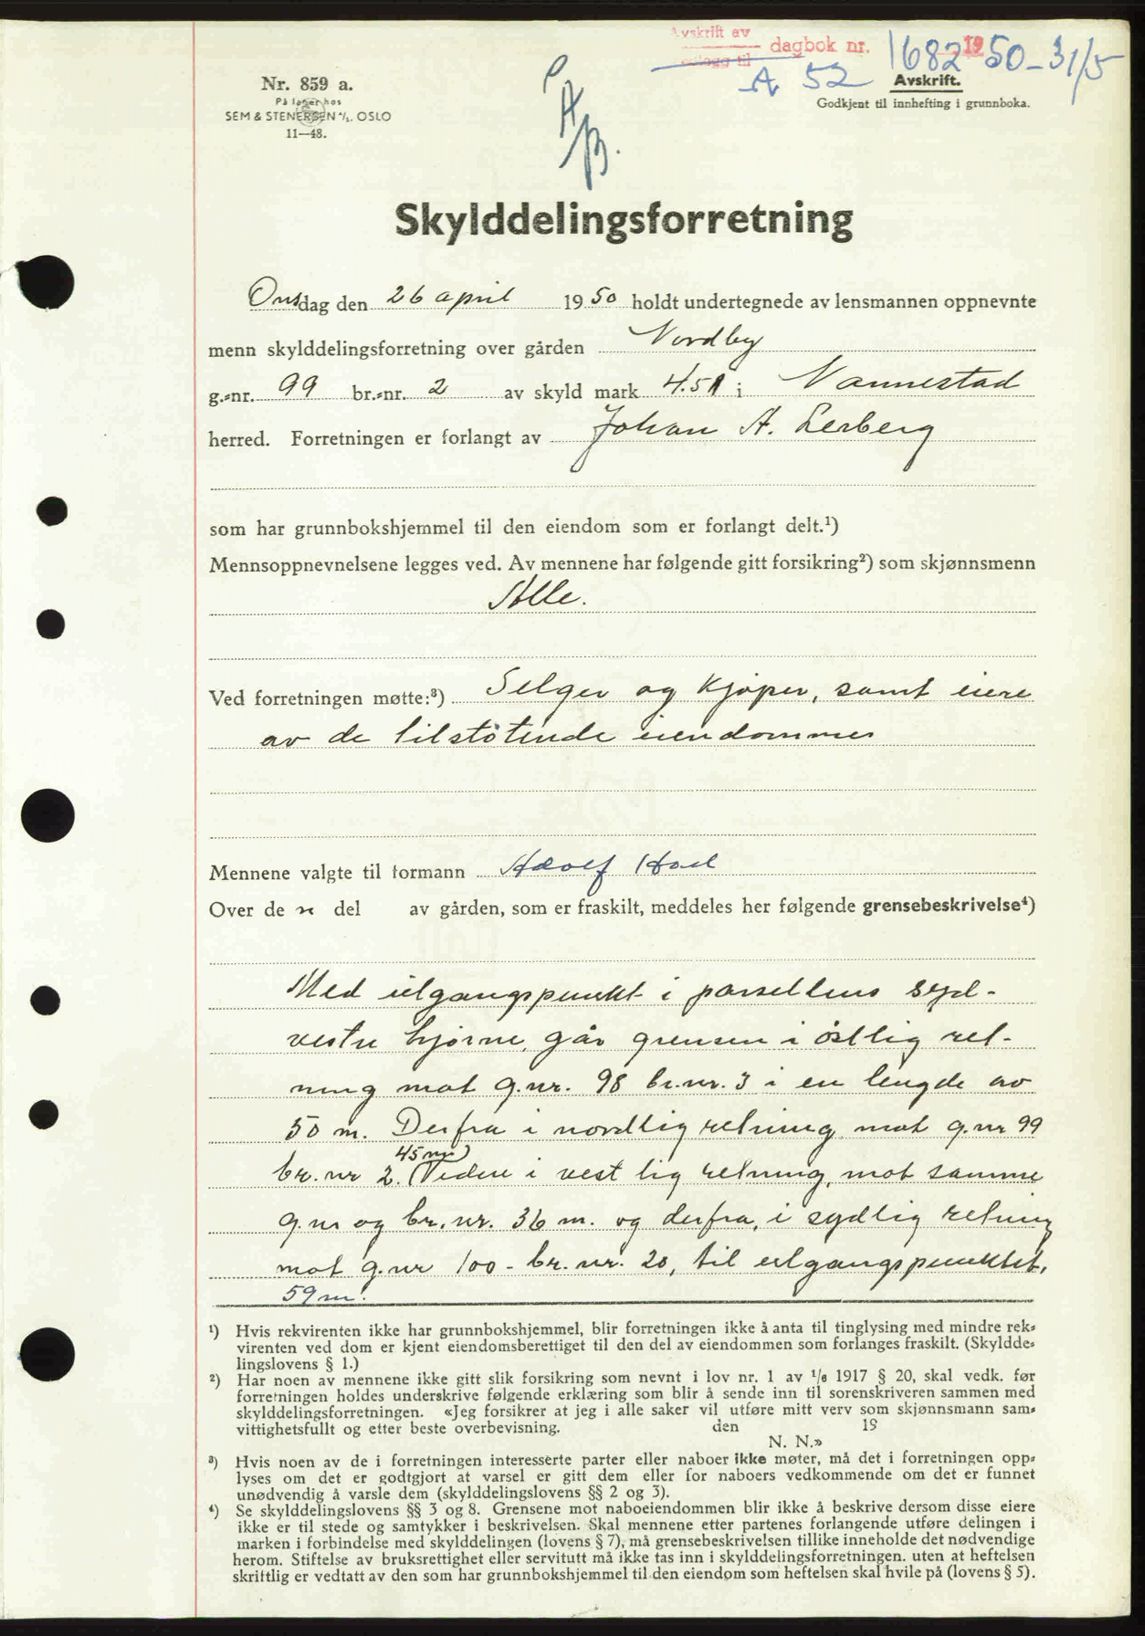 Avskrift av
dagbok nr. 1682 1950-31/5
A 52
Nr. 859 a.
På lager hos
SEM & STENERSEN A/S. OSLO
11—48.
Avskrift.
Godkjent til innhefting i grunnboka.
Skylddelingsforretning
Onsdag den 26 april 1950 holdt undertegnede av lensmannen oppnevnte
menn skylddelingsforretning over gården Nordby
g.-nr. 99 br.-nr. 2 av skyld mark 4.51 i Nannestad
herred. Forretningen er forlangt av Johan A. Lerberg
som har grunnbokshjemmel til den eiendom som er forlangt delt.¹)
Mennsoppnevnelsene legges ved. Av mennene har følgende gitt forsikring²) som skjønnsmenn
Alle.
Ved forretningen møtte:³) Selger og Kjøper, samt eiere
av de tilstøtende eiendommer
Mennene valgte til formann Adolf Hoel
Over de n del av gården, som er fraskilt, meddeles her følgende grensebeskrivelse⁴)
Med utgangspunkt i parsellens syd-
vestre hjørne, går grensen i østlig ret-
ning mot g.nr. 98 br.nr. 3 i en lengde av
50 m. Derfra i nordlig retning mot g.nr 99
br.nr 2. 45 m Videre i vestlig retning, mot samme
g.nr og br.nr. 36 m. og derfra, i sydlig retning
mot g.nr 100 - br.nr. 20, til utgangspunktet,
59 m.
¹) Hvis rekvirenten ikke har grunnbokshjemmel, blir forretningen ikke å anta til tinglysing med mindre rek-
virenten ved dom er kjent eiendomsberettiget til den del av eiendommen som forlanges fraskilt. (Skyldde-
lingslovens § 1.)
²) Har noen av mennene ikke gitt slik forsikring som nevnt i lov nr. 1 av 1/6 1917 § 20, skal vedk. før
forretningen holdes underskrive følgende erklæring som blir å sende inn til sorenskriveren sammen med
skylddelingsforretningen. «Jeg forsikrer at jeg i alle saker vil utføre mitt verv som skjønnsmann sam-
vittighetsfullt og etter beste overbevisning. den 19
N. N.»
³) Hvis noen av de i forretningen interesserte parter eller naboer ikke møter, må det i forretningen opp-
lyses om det er godtgjort at varsel er gitt dem eller for naboers vedkommende om det er funnet
unødvendig å varsle dem (skylddelingslovens §§ 2 og 3).
⁴) Se skylddelingslovens §§ 3 og 8. Grensene mot naboeiendommen blir ikke å beskrive dersom disse eiere
ikke er til stede og samtykker i beskrivelsen. Skal mennene etter partenes forlangende utføre delingen i
marken i forbindelse med skylddelingen (lovens § 7), må grensebeskrivelsen tillike inneholde det nødvendige
herom. Stiftelse av bruksrettighet eller servitutt må ikke tas inn i skylddelingsforretningen. uten at heftelsen
skriftlig er vedtatt av den som har grunnbokshjemmel til den eiendom som heftelsen skal hvile på (lovens § 5).